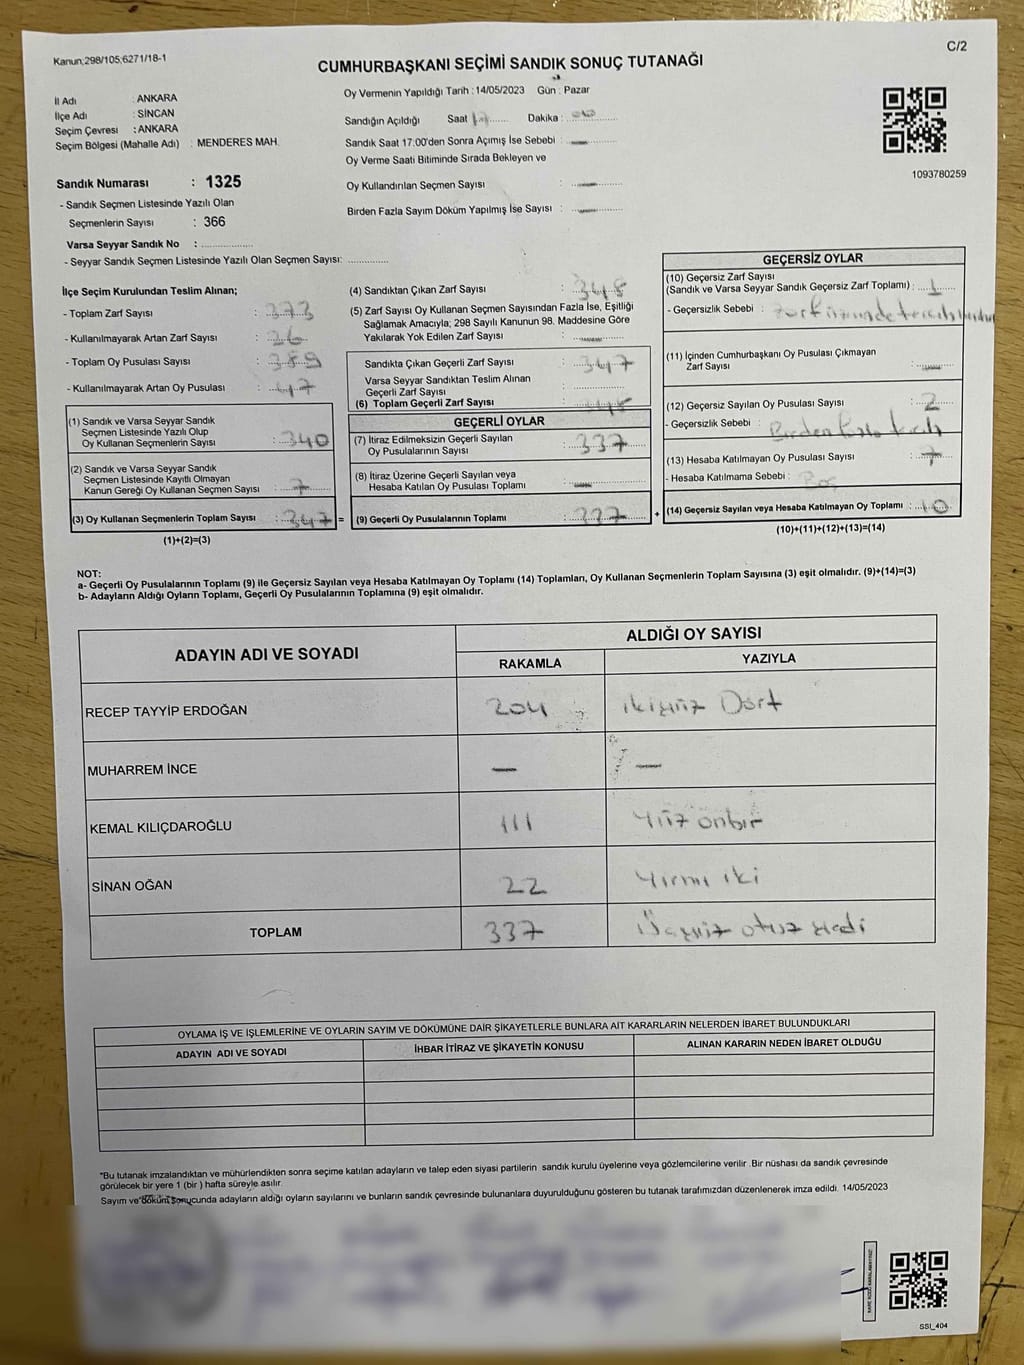 Kanun;298/105;6271/18-1
C/2
CUMHURBAŞKANI SEÇİMİ SANDIK SONUÇ TUTANAĞI
İl Adı : ANKARA
İlçe Adı : SİNCAN
Seçim Çevresi : ANKARA
Seçim Bölgesi (Mahalle Adı) : MENDERES MAH.
Sandık Numarası : 1325
- Sandık Seçmen Listesinde Yazılı Olan
Seçmenlerin Sayısı : 366
Varsa Seyyar Sandık No : ..................
- Seyyar Sandık Seçmen Listesinde Yazılı Olan Seçmen Sayısı: .............
Oy Vermenin Yapıldığı Tarih : 14/05/2023 Gün : Pazar
Sandığın Açıldığı Saat Dakika :
Sandık Saat 17:00'den Sonra Açımış İse Sebebi : —
Oy Verme Saati Bitiminde Sırada Bekleyen ve
Oy Kullandırılan Seçmen Sayısı : —
Birden Fazla Sayım Döküm Yapılmış İse Sayısı : —
1093780259
İlçe Seçim Kurulundan Teslim Alınan;
- Toplam Zarf Sayısı : 373
- Kullanılmayarak Artan Zarf Sayısı : 26
- Toplam Oy Pusulası Sayısı : 389
- Kullanılmayarak Artan Oy Pusulası : 47
(1) Sandık ve Varsa Seyyar Sandık
Seçmen Listesinde Yazılı Olup
Oy Kullanan Seçmenlerin Sayısı : 340
(2) Sandık ve Varsa Seyyar Sandık
Seçmen Listesinde Kayıtlı Olmayan
Kanun Gereği Oy Kullanan Seçmen Sayısı : 7
(3) Oy Kullanan Seçmenlerin Toplam Sayısı : 347 =
(1)+(2)=(3)
(4) Sandıktan Çıkan Zarf Sayısı : 348
(5) Zarf Sayısı Oy Kullanan Seçmen Sayısından Fazla İse, Eşitliği
Sağlamak Amacıyla; 298 Sayılı Kanunun 98. Maddesine Göre
Yakılarak Yok Edilen Zarf Sayısı : —
Sandıkta Çıkan Geçerli Zarf Sayısı : 347
Varsa Seyyar Sandıktan Teslim Alınan
Geçerli Zarf Sayısı : .............
(6) Toplam Geçerli Zarf Sayısı :
GEÇERLİ OYLAR
(7) İtiraz Edilmeksizin Geçerli Sayılan
Oy Pusulalarının Sayısı : 337
(8) İtiraz Üzerine Geçerli Sayılan veya
Hesaba Katılan Oy Pusulası Toplamı : —
(9) Geçerli Oy Pusulalarının Toplamı : 337 +
GEÇERSİZ OYLAR
(10) Geçersiz Zarf Sayısı
(Sandık ve Varsa Seyyar Sandık Geçersiz Zarf Toplamı) : 1
- Geçersizlik Sebebi : zarf üzerinde
(11) İçinden Cumhurbaşkanı Oy Pusulası Çıkmayan
Zarf Sayısı : —
(12) Geçersiz Sayılan Oy Pusulası Sayısı : 2
- Geçersizlik Sebebi : Birden fazla
(13) Hesaba Katılmayan Oy Pusulası Sayısı : 7
- Hesaba Katılmama Sebebi : Boş
(14) Geçersiz Sayılan veya Hesaba Katılmayan Oy Toplamı : 10
(10)+(11)+(12)+(13)=(14)
NOT:
a- Geçerli Oy Pusulalarının Toplamı (9) ile Geçersiz Sayılan veya Hesaba Katılmayan Oy Toplamı (14) Toplamları, Oy Kullanan Seçmenlerin Toplam Sayısına (3) eşit olmalıdır. (9)+(14)=(3)
b- Adayların Aldığı Oyların Toplamı, Geçerli Oy Pusulalarının Toplamına (9) eşit olmalıdır.
ADAYIN ADI VE SOYADI
ALDIĞI OY SAYISI
RAKAMLA YAZIYLA
RECEP TAYYİP ERDOĞAN 204 ikiyüz Dört
MUHARREM İNCE — —
KEMAL KILIÇDAROĞLU 111 yüz onbir
SİNAN OĞAN 22 yirmi iki
TOPLAM 337 Üçyüz otuz yedi
OYLAMA İŞ VE İŞLEMLERİNE VE OYLARIN SAYIM VE DÖKÜMÜNE DAİR ŞİKAYETLERLE BUNLARA AİT KARARLARIN NELERDEN İBARET BULUNDUKLARI
ADAYIN ADI VE SOYADI İHBAR İTİRAZ VE ŞİKAYETİN KONUSU ALINAN KARARIN NEDEN İBARET OLDUĞU
*Bu tutanak imzalandıktan ve mühürlendikten sonra seçime katılan adayların ve talep eden siyasi partilerin sandık kurulu üyelerine veya gözlemcilerine verilir .Bir nüshası da sandık çevresinde
görülecek bir yere 1 (bir ) hafta süreyle asılır.
Sayım ve döküm sonucunda adayların aldığı oyların sayılarını ve bunların sandık çevresinde bulunanlara duyurulduğunu gösteren bu tutanak tarafımızdan düzenlenerek imza edildi. 14/05/2023
SSI_404